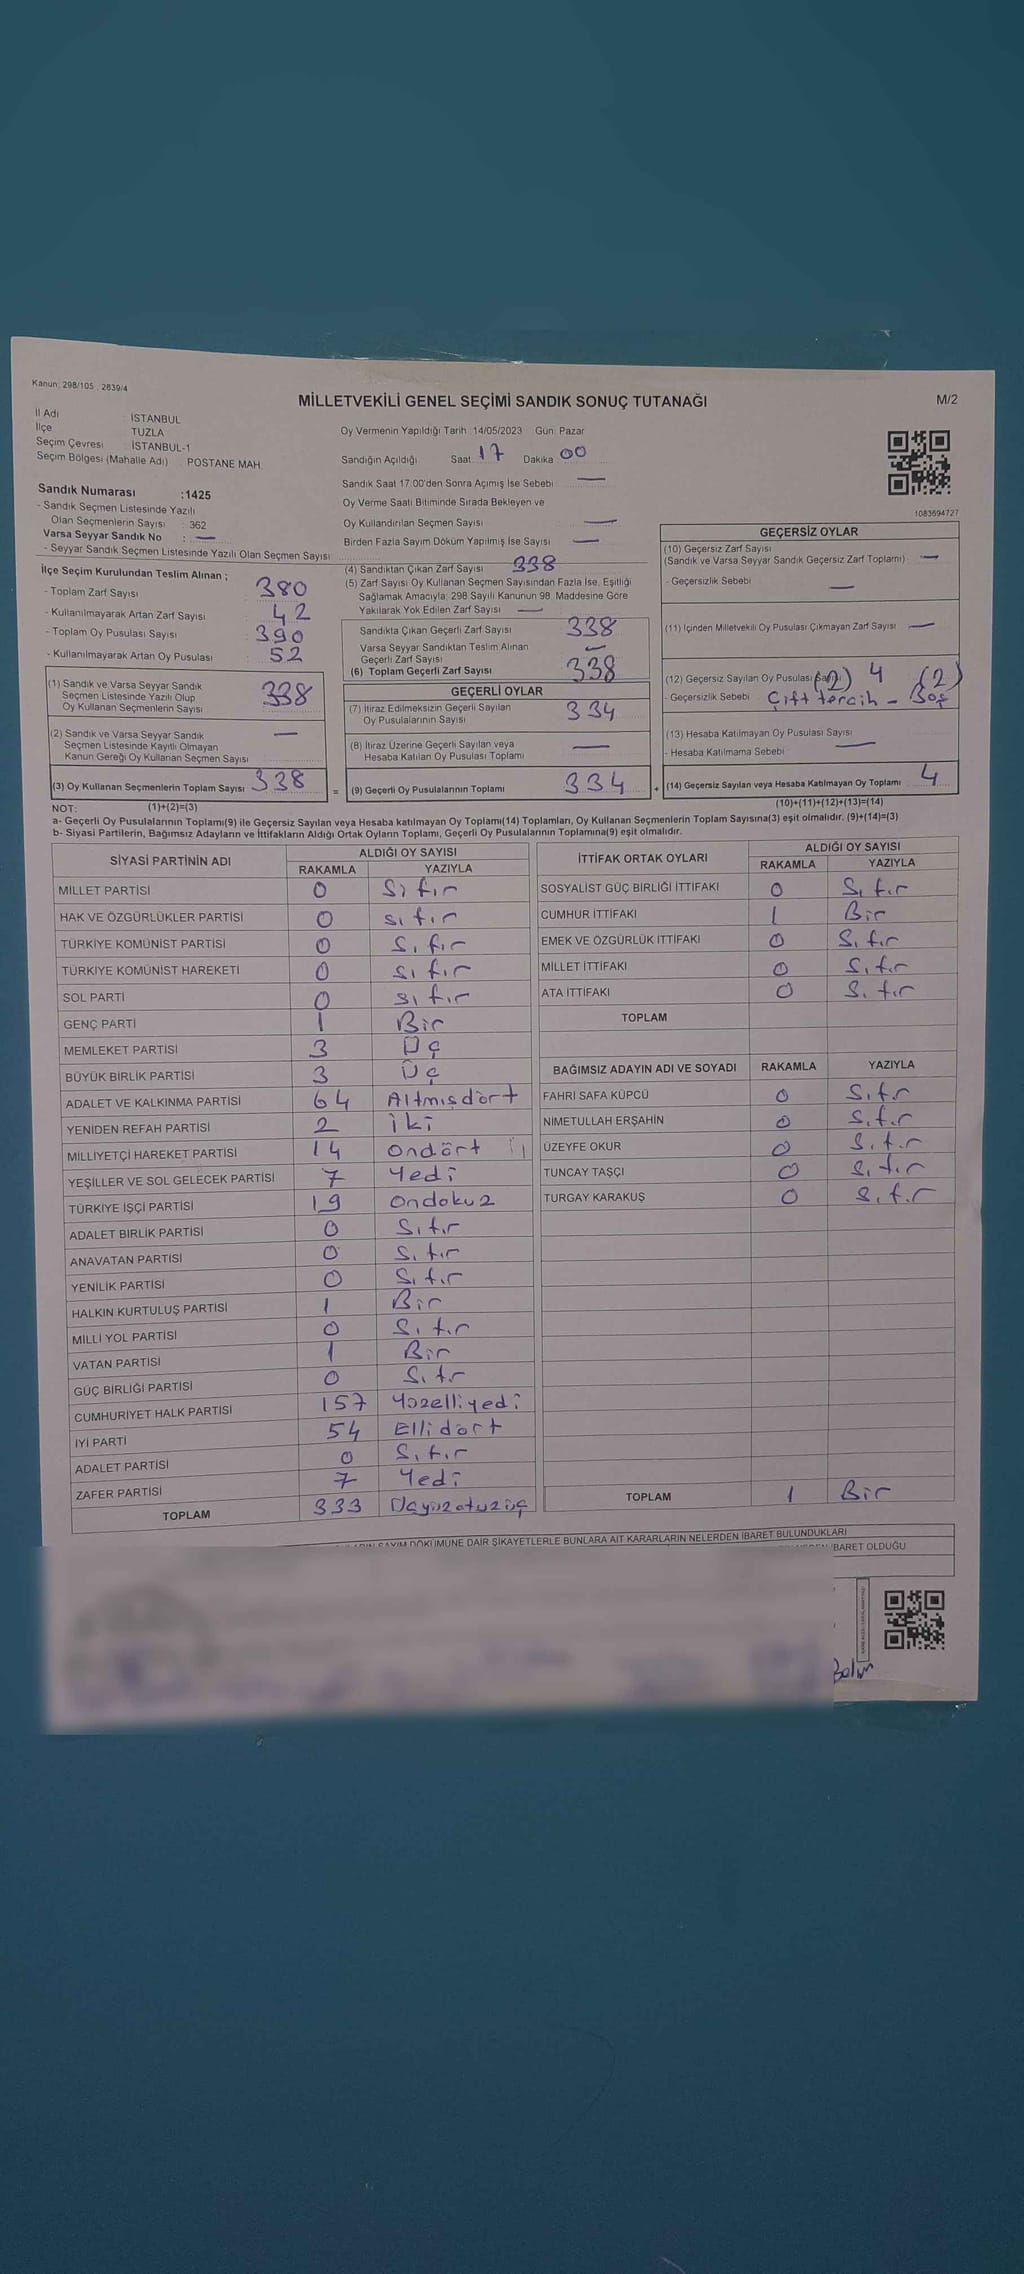 Kanun: 298/105 , 2839/4
MİLLETVEKİLİ GENEL SEÇİMİ SANDIK SONUÇ TUTANAĞI
M/2
İl Adı : İSTANBUL
İlçe : TUZLA
Seçim Çevresi : İSTANBUL-1
Seçim Bölgesi (Mahalle Adı) : POSTANE MAH.
Oy Vermenin Yapıldığı Tarih :14/05/2023 Gün: Pazar
Sandığın Açıldığı Saat 17 Dakika 00
Sandık Saat 17.00'den Sonra Açımış İse Sebebi —
Oy Verme Saati Bitiminde Sırada Bekleyen ve
Oy Kullandırılan Seçmen Sayısı —
Birden Fazla Sayım Döküm Yapılmış İse Sayısı —
1083694727
Sandık Numarası :1425
- Sandık Seçmen Listesinde Yazılı
Olan Seçmenlerin Sayısı : 362
Varsa Seyyar Sandık No : —
- Seyyar Sandık Seçmen Listesinde Yazılı Olan Seçmen Sayısı
İlçe Seçim Kurulundan Teslim Alınan ;
- Toplam Zarf Sayısı : 380
- Kullanılmayarak Artan Zarf Sayısı : 42
- Toplam Oy Pusulası Sayısı : 390
- Kullanılmayarak Artan Oy Pusulası : 52
(1) Sandık ve Varsa Seyyar Sandık
Seçmen Listesinde Yazılı Olup
Oy Kullanan Seçmenlerin Sayısı 338
(2) Sandık ve Varsa Seyyar Sandık
Seçmen Listesinde Kayıtlı Olmayan
Kanun Gereği Oy Kullanan Seçmen Sayısı —
(3) Oy Kullanan Seçmenlerin Toplam Sayısı 338 =
(4) Sandıktan Çıkan Zarf Sayısı 338
(5) Zarf Sayısı Oy Kullanan Seçmen Sayısından Fazla İse, Eşitliği
Sağlamak Amacıyla; 298 Sayılı Kanunun 98. Maddesine Göre
Yakılarak Yok Edilen Zarf Sayısı —
Sandıkta Çıkan Geçerli Zarf Sayısı 338
Varsa Seyyar Sandıktan Teslim Alınan
Geçerli Zarf Sayısı —
(6) Toplam Geçerli Zarf Sayısı 338
GEÇERLİ OYLAR
(7) İtiraz Edilmeksizin Geçerli Sayılan
Oy Pusulalarının Sayısı 334
(8) İtiraz Üzerine Geçerli Sayılan veya
Hesaba Katılan Oy Pusulası Toplamı —
(9) Geçerli Oy Pusulalarının Toplamı 334 +
GEÇERSİZ OYLAR
(10) Geçersiz Zarf Sayısı
(Sandık ve Varsa Seyyar Sandık Geçersiz Zarf Toplamı) —
- Geçersizlik Sebebi —
(11) İçinden Milletvekili Oy Pusulası Çıkmayan Zarf Sayısı —
(12) Geçersiz Sayılan Oy Pusulası Sayısı (2) 4 (2)
- Geçersizlik Sebebi Çift tercih - Boş
(13) Hesaba Katılmayan Oy Pusulası Sayısı —
- Hesaba Katılmama Sebebi
(14) Geçersiz Sayılan veya Hesaba Katılmayan Oy Toplamı 4
NOT: (1)+(2)=(3)
(10)+(11)+(12)+(13)=(14)
a- Geçerli Oy Pusulalarının Toplamı(9) ile Geçersiz Sayılan veya Hesaba katılmayan Oy Toplamı(14) Toplamları, Oy Kullanan Seçmenlerin Toplam Sayısına(3) eşit olmalıdır. (9)+(14)=(3)
b- Siyasi Partilerin, Bağımsız Adayların ve İttifakların Aldığı Ortak Oyların Toplamı, Geçerli Oy Pusulalarının Toplamına(9) eşit olmalıdır.
SİYASİ PARTİNİN ADI ALDIĞI OY SAYISI
RAKAMLA YAZIYLA
MİLLET PARTİSİ 0 Sıfır
HAK VE ÖZGÜRLÜKLER PARTİSİ 0 sıfır
TÜRKİYE KOMÜNİST PARTİSİ 0 Sıfır
TÜRKİYE KOMÜNİST HAREKETİ 0 sıfır
SOL PARTİ 0 sıfır
GENÇ PARTİ 1 Bir
MEMLEKET PARTİSİ 3 Üç
BÜYÜK BİRLİK PARTİSİ 3 Üç
ADALET VE KALKINMA PARTİSİ 64 Altmışdört
YENİDEN REFAH PARTİSİ 2 iki
MİLLİYETÇİ HAREKET PARTİSİ 14 Ondört
YEŞİLLER VE SOL GELECEK PARTİSİ 7 Yedi
TÜRKİYE İŞÇİ PARTİSİ 19 Ondokuz
ADALET BİRLİK PARTİSİ 0 Sıfır
ANAVATAN PARTİSİ 0 Sıfır
YENİLİK PARTİSİ 0 Sıfır
HALKIN KURTULUŞ PARTİSİ 1 Bir
MİLLİ YOL PARTİSİ 0 Sıfır
VATAN PARTİSİ 1 Bir
GÜÇ BİRLİĞİ PARTİSİ 0 Sıfır
CUMHURİYET HALK PARTİSİ 157 Yüzelliyedi
İYİ PARTİ 54 Ellidört
ADALET PARTİSİ 0 Sıfır
ZAFER PARTİSİ 7 Yedi
TOPLAM 333 Üçyüzotuzüç
İTTİFAK ORTAK OYLARI ALDIĞI OY SAYISI
RAKAMLA YAZIYLA
SOSYALİST GÜÇ BİRLİĞİ İTTİFAKI 0 Sıfır
CUMHUR İTTİFAKI 1 Bir
EMEK VE ÖZGÜRLÜK İTTİFAKI 0 Sıfır
MİLLET İTTİFAKI 0 Sıfır
ATA İTTİFAKI 0 Sıfır
TOPLAM
BAĞIMSIZ ADAYIN ADI VE SOYADI RAKAMLA YAZIYLA
FAHRİ SAFA KÜPCÜ 0 Sıfır
NİMETULLAH ERŞAHİN 0 Sıfır
ÜZEYFE OKUR 0 Sıfır
TUNCAY TAŞÇI 0 Sıfır
TURGAY KARAKUŞ 0 Sıfır
TOPLAM 1 Bir
SAYIM DÖKÜMÜNE DAİR ŞİKAYETLERLE BUNLARA AİT KARARLARIN NELERDEN İBARET BULUNDUKLARI
İBARET OLDUĞU